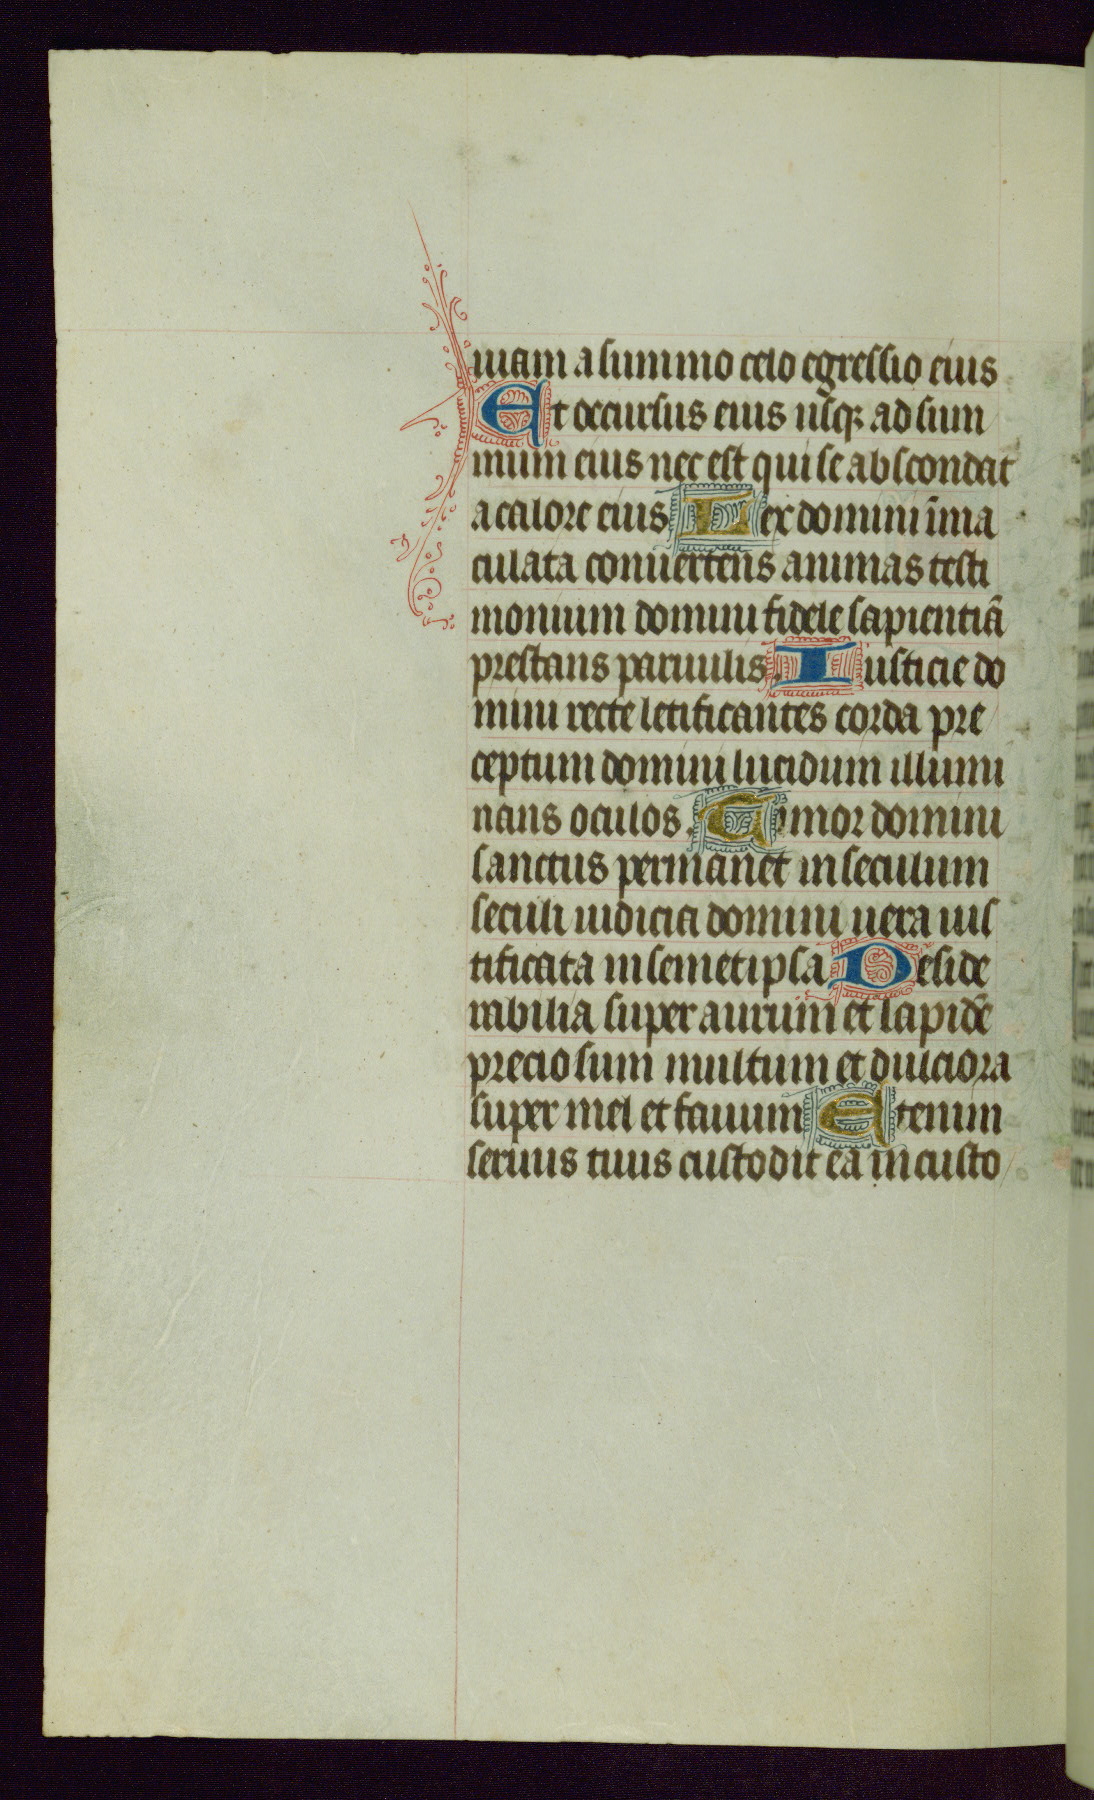 uiam a summo celo egressio eius
Et occursus eius usqꝫ ad sum
mum eius nec est qui se abscondat
a calore eius Lex domini ĩma
culata conuertens animas testi
monium domini fidele sapientiã
prestans paruulis. Iusticie do
mini recte letificantes corda pre
ceptum domini lucidum illumi
nans oculos. Timor domini
sanctus permanet in seculum
seculi iudicia domini uera ius
tificata in semetipsa Deside
rabilia super aurum et lapidẽ
preciosum multum et dulciora
super mel et fauum Etenim
seruus tuus custodit ea in custo